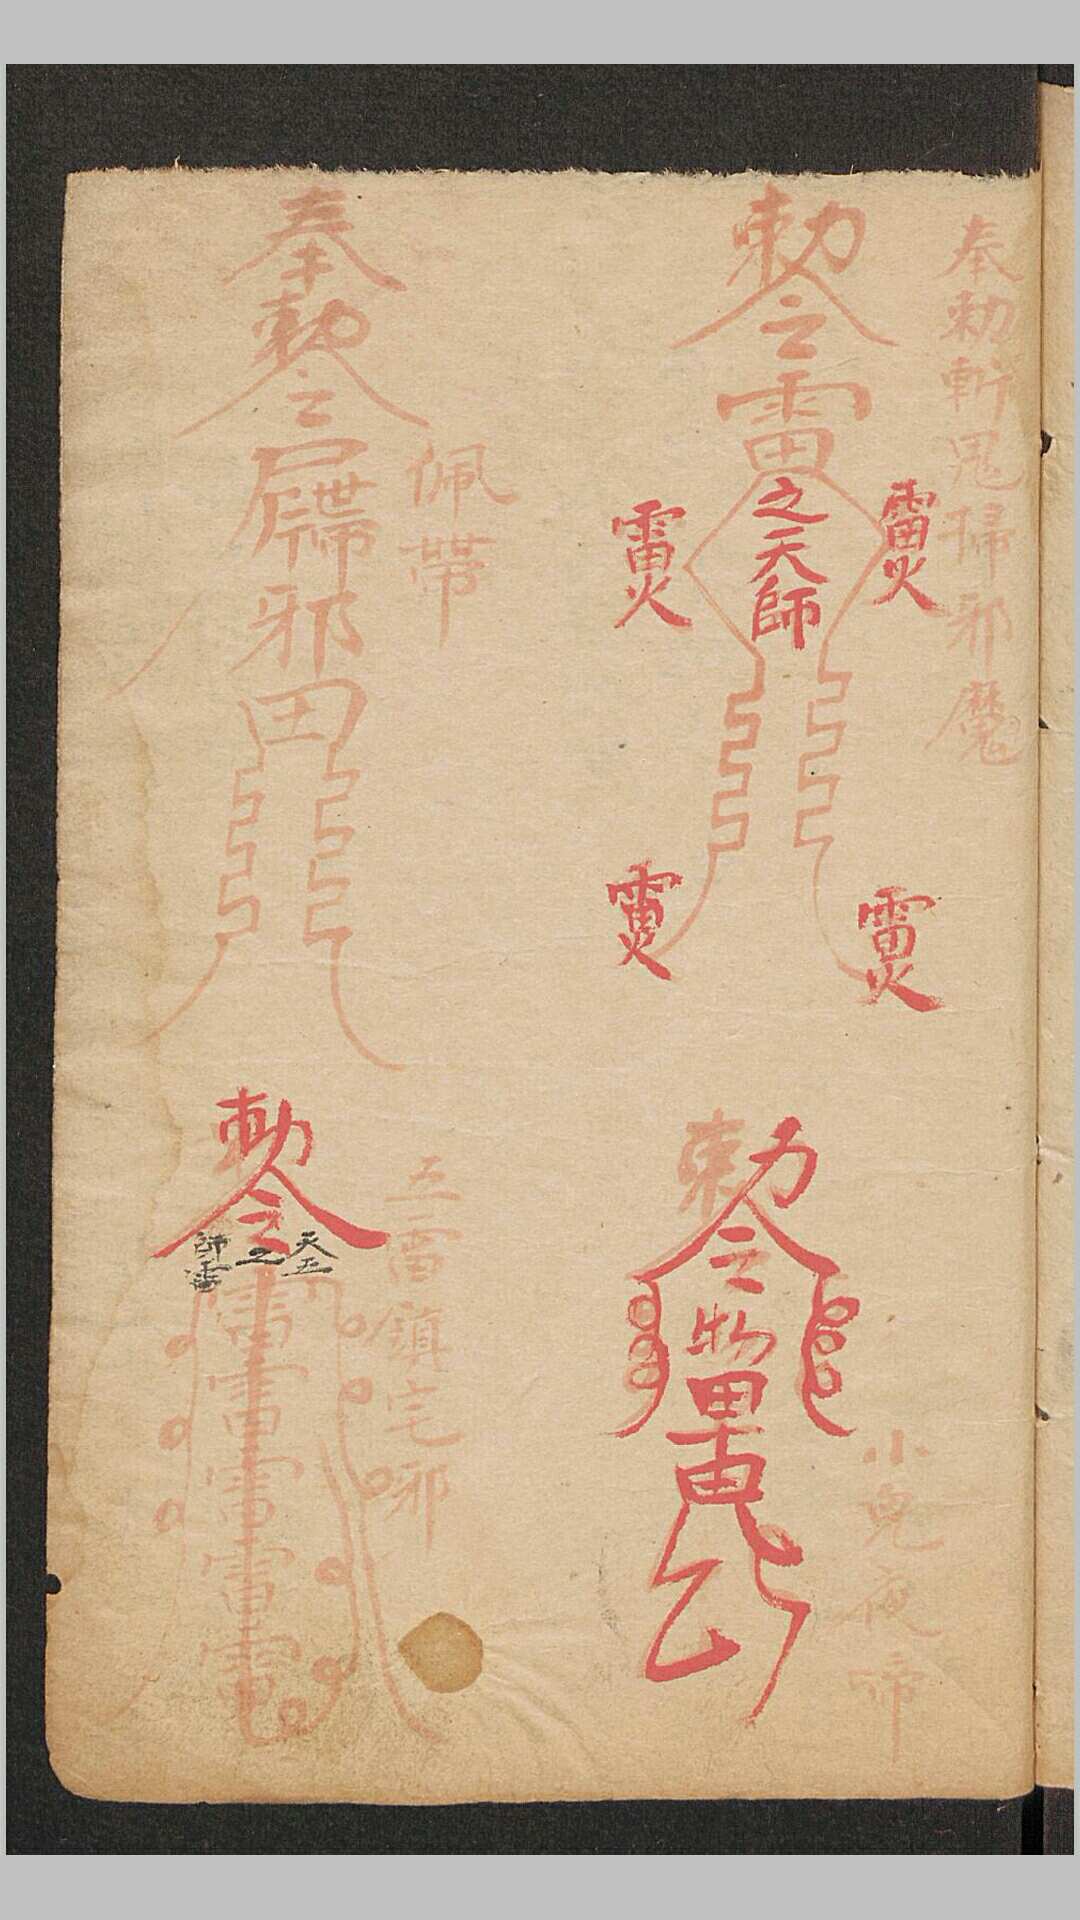 奉勅斬鬼掃邪魔
勅令雷
之天師
雷火
雷火
雷火
雷火
佩帶
奉勅令
邪田
勅令物
小鬼夜啼
五雷鎮宅邪
勅令
天五
之
師雷
雷雷雷雷電